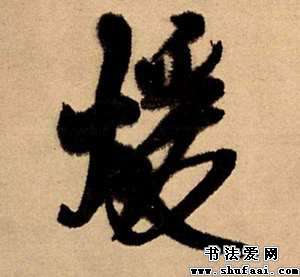 援
书法爱网
www.shufaai.com